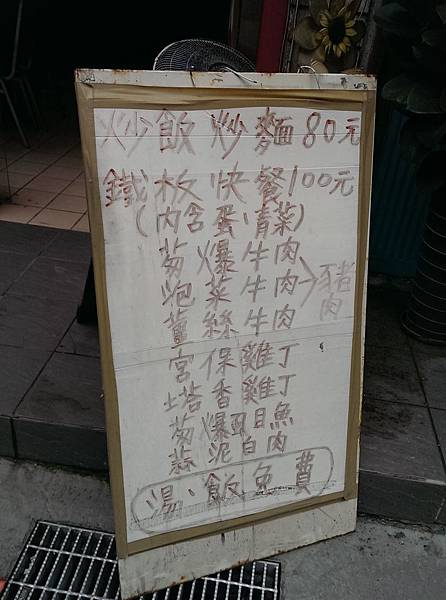 炒飯炒麵80元
鐵板快餐100元
(內含蛋、青菜)
蔥爆牛肉
泡菜牛肉>豬肉
薑絲牛肉
宮保雞丁
塔香雞丁
蔥爆虱目魚
蒜泥白肉
湯、飯免費